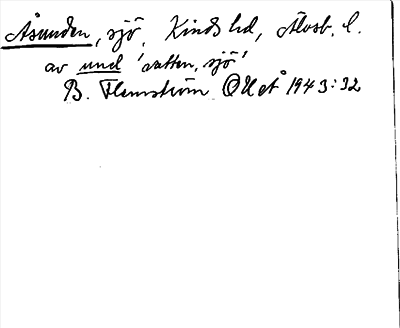 Åsunden, sjö, Kinds hd, Älvsb. l.
av und 'vatten, sjö'
B. Flemström OUÅ 1943:32